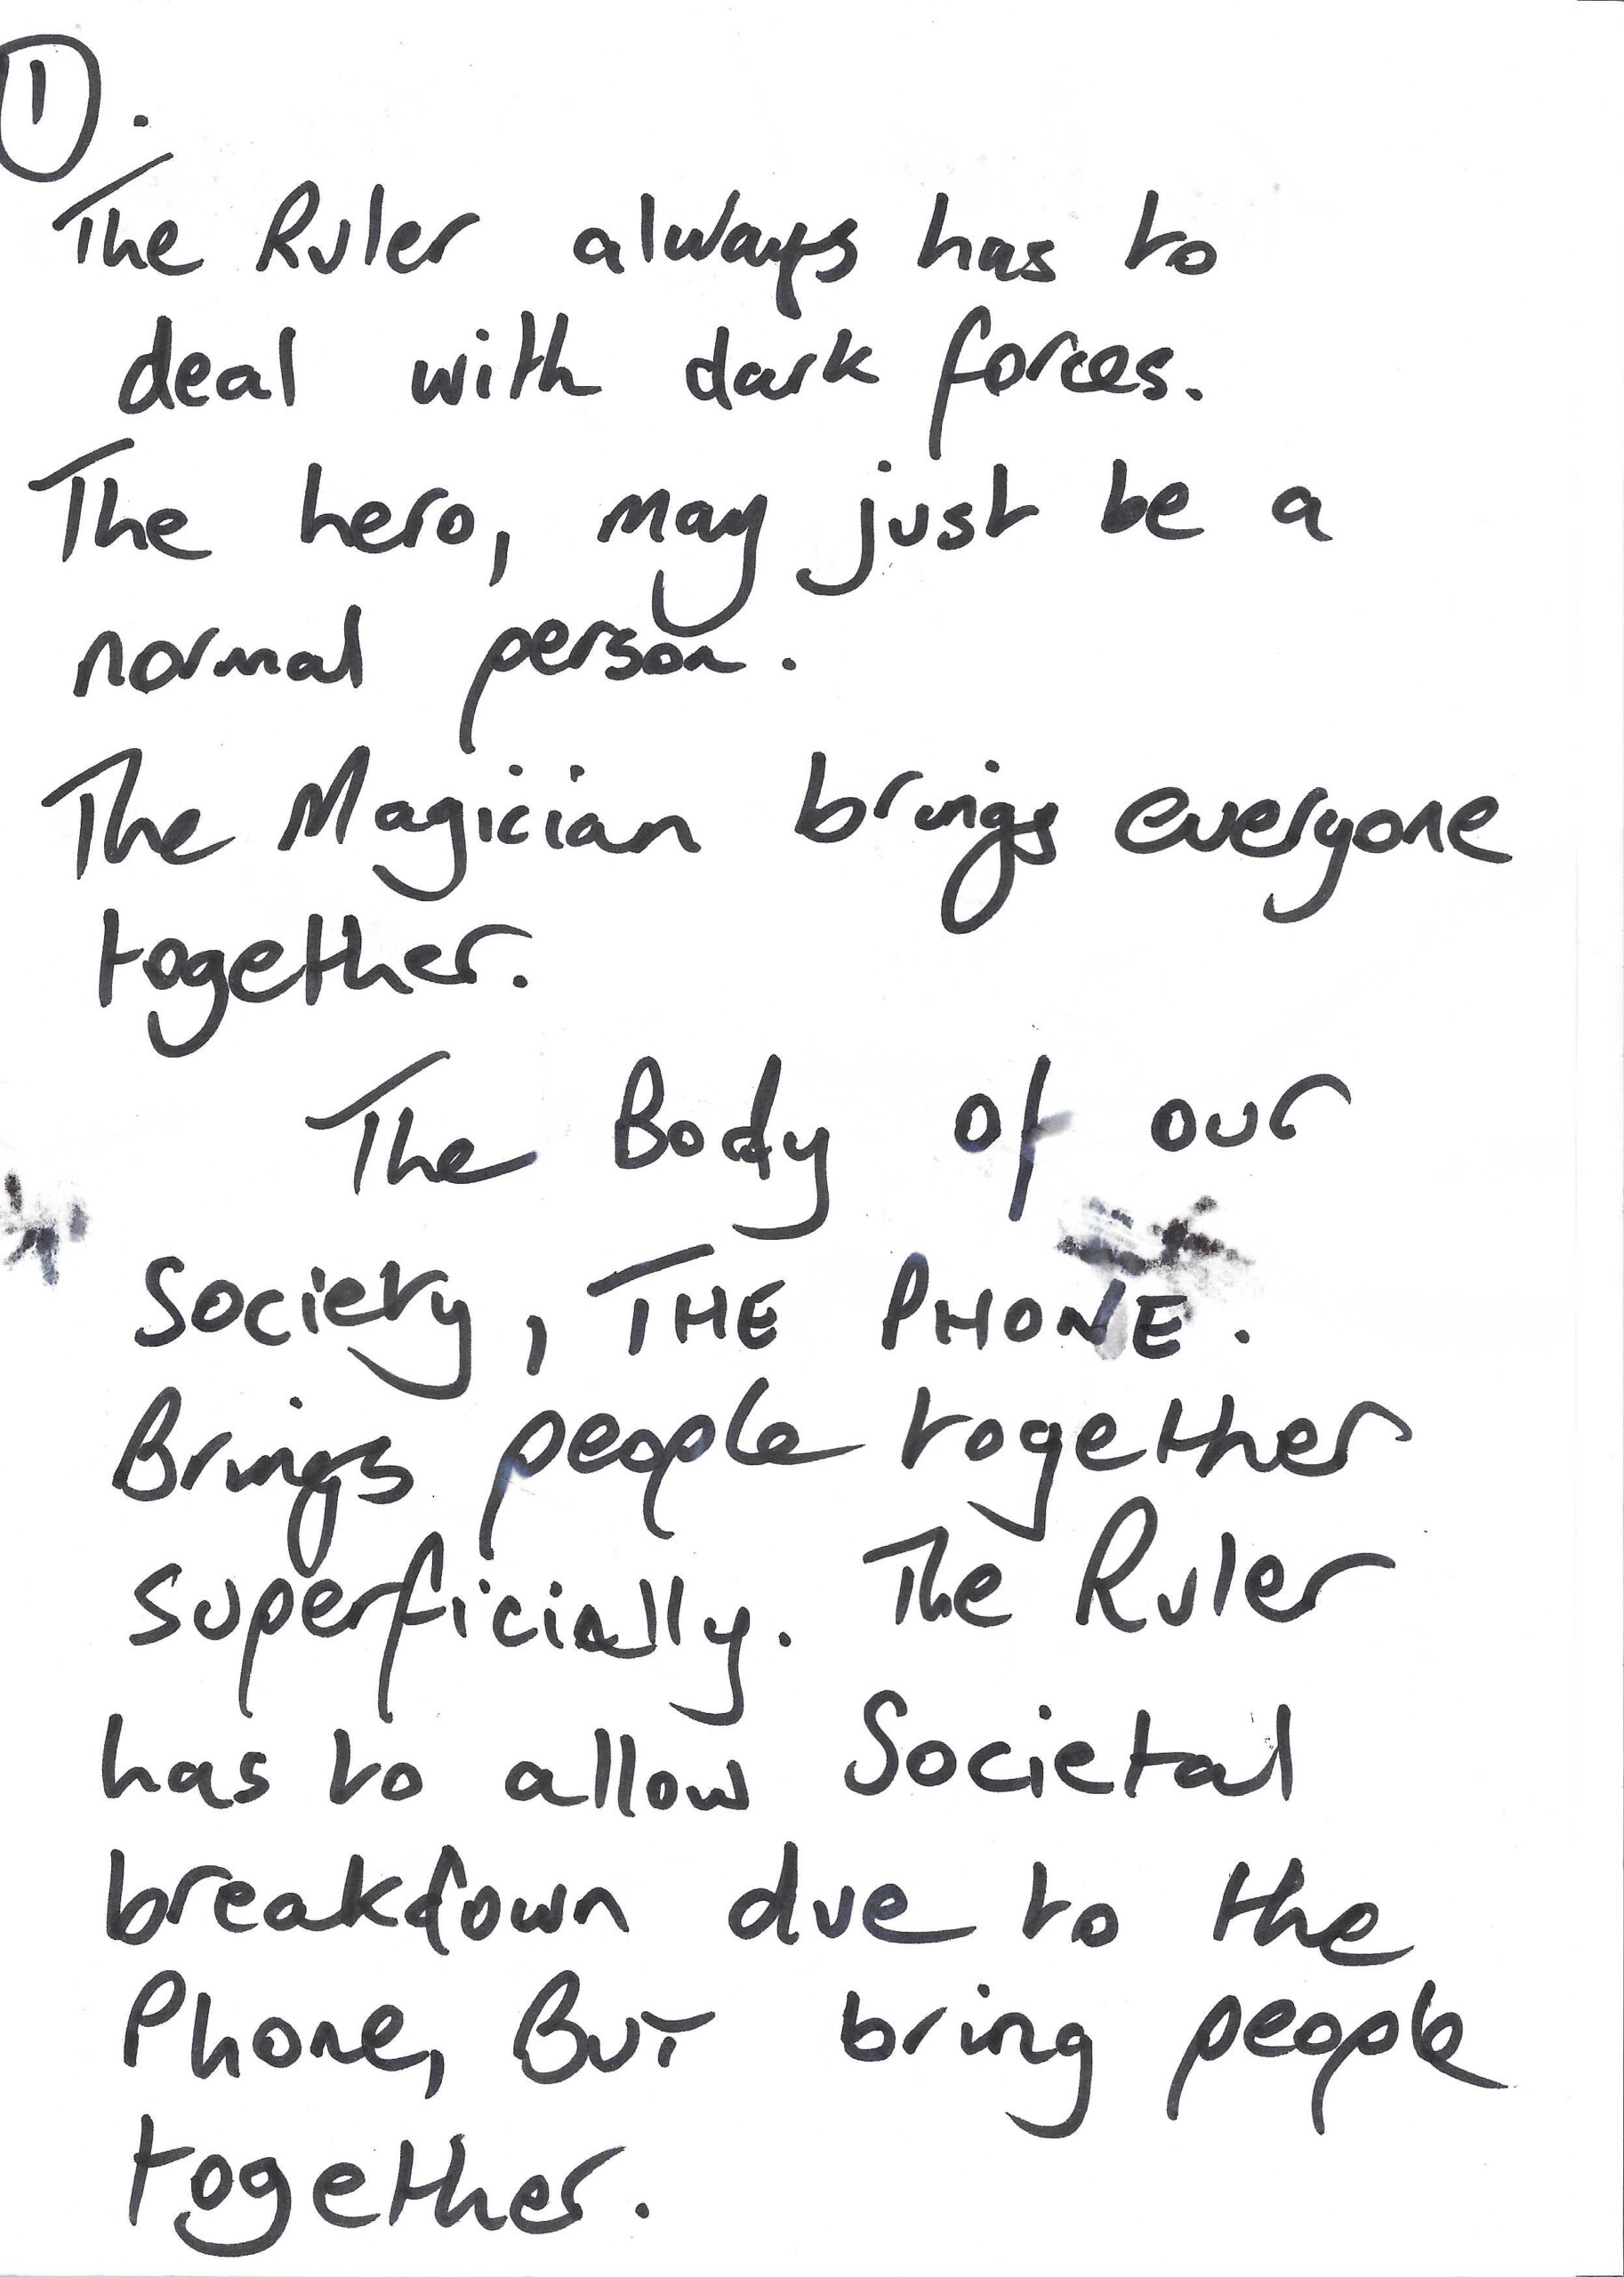 1.
The Ruler always has to
deal with dark forces.
The hero, may just be a
normal person.
The Magician brings everyone
together.
The Body of our
Society, THE PHONE.
Brings people together
superficially. The Ruler
has to allow Societal
breakdown due to the
Phone, BUT bring people
together.